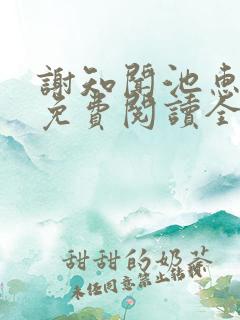 謝知聞池惠
免費閱讀全
甜甜的奶茶
未经同意禁止转载